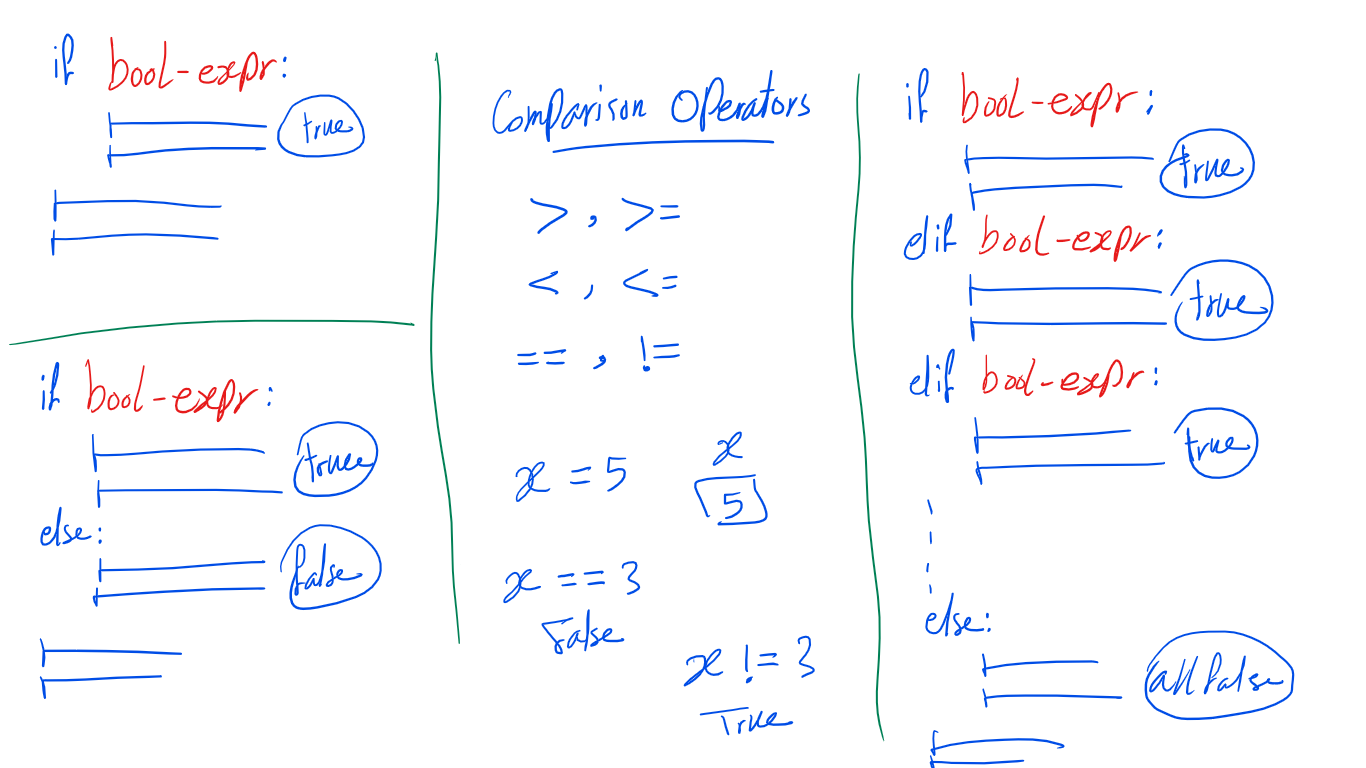 if bool-expr:
true
if bool-expr:
true
else:
false
Comparison Operators
> , >=
< , <=
== , !=
x = 5
x
5
x == 3
False
x != 3
True
if bool-expr:
true
elif bool-expr:
true
elif bool-expr:
true
else:
all false